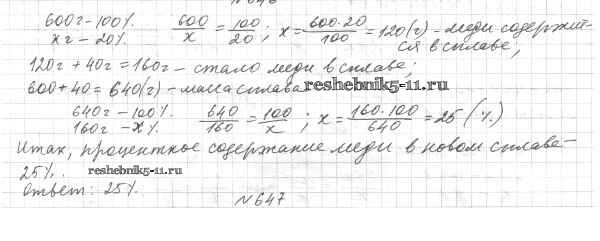 600г - 100%
xг - 20%
600/x = 100/20; x = 600·20/100 = 120(г) - меди содержит-
ся в сплаве;
120г + 40г = 160г - стало меди в сплаве;
600 + 40 = 640(г) - масса сплава
reshebnik5-11.ru
640г - 100%
160г - x%
640/160 = 100/x; x = 160·100/640 = 25 (%)
Итак, процентное содержание меди в новом сплаве -
25%.
reshebnik5-11.ru
Ответ: 25%.
№647